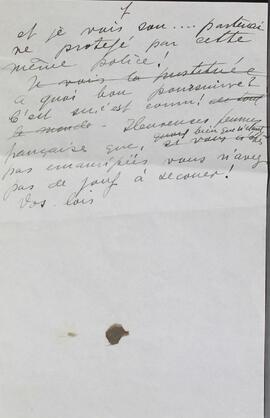 7
et je vois son .... partenai
re protégé par cette
même police!
Je vois la prostituée
a quoi bon poursuivre?
C'est su, c'est connu de tout
le monde - Heureuses femmes
française que, quoique bien
pas émancipées vous n'avez
pas de joug à secouer!
Vos lois